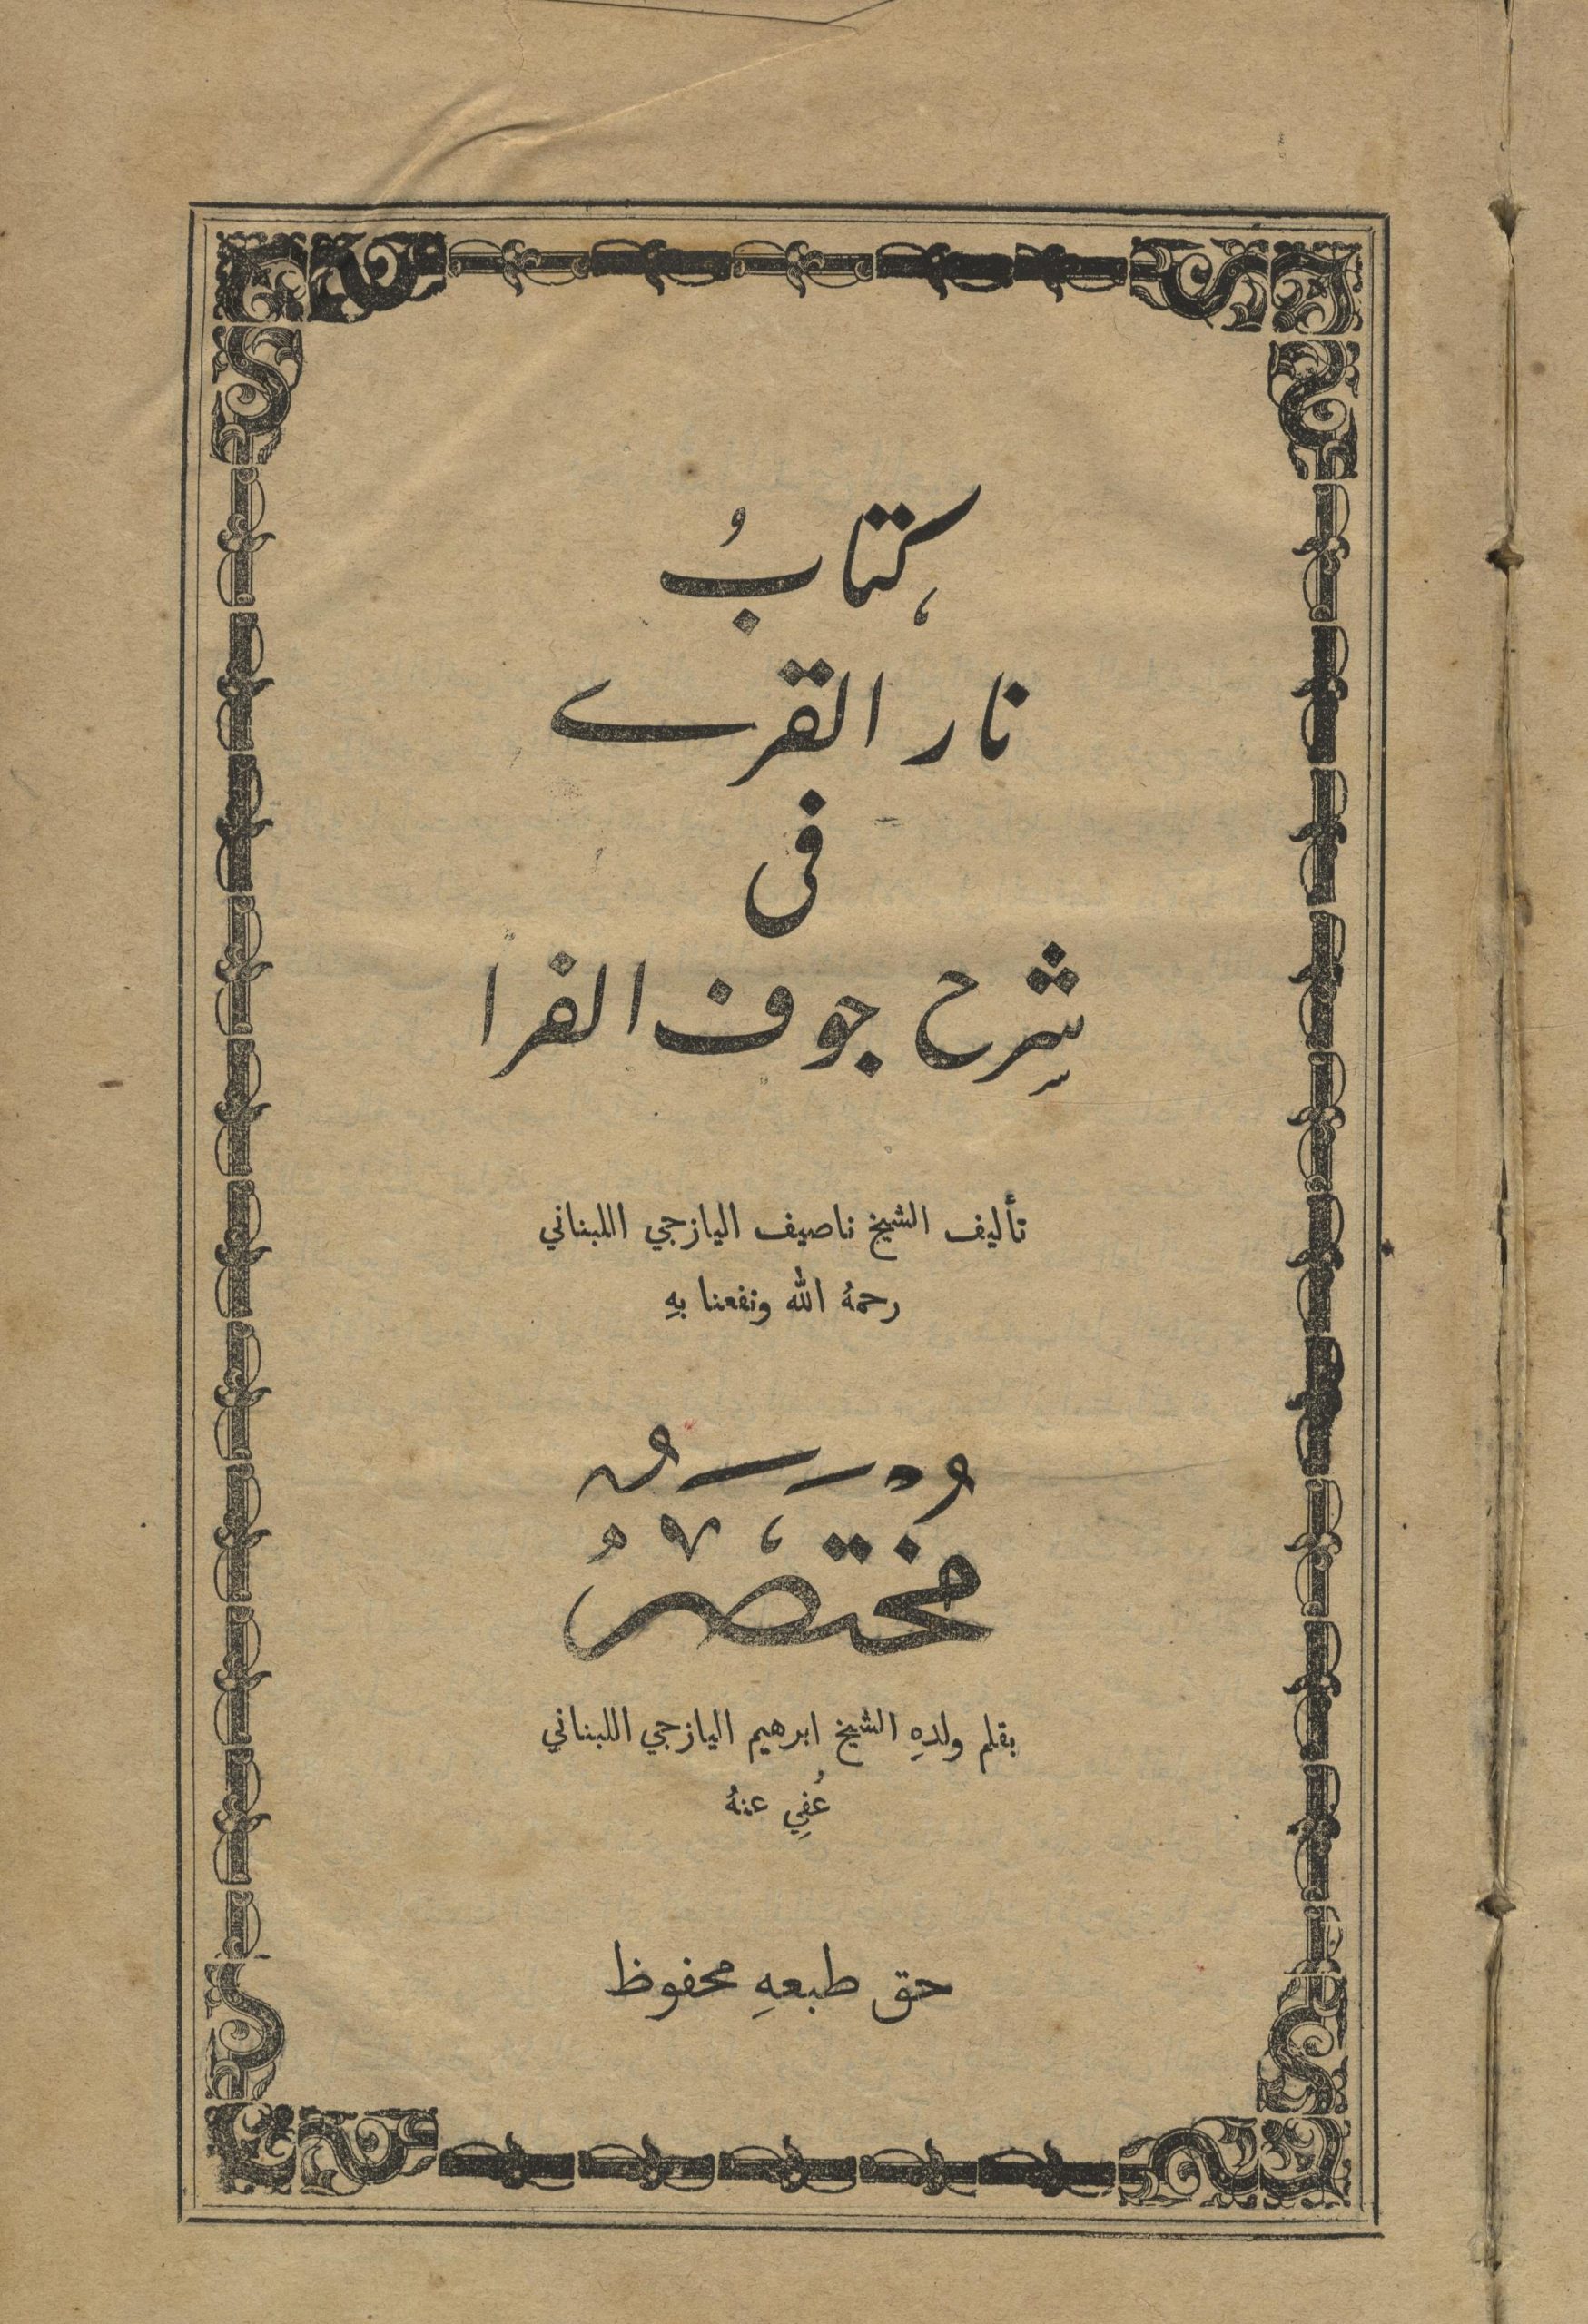 كتابُ
نار القرے
فى
شِرح جوف الفرا
تأليف الشيخ ناصيف اليازجي اللبناني
رحمهُ الله ونفعنا بهِ
مُختصرُ
بقلم ولدهِ الشيخ ابرهيم اليازجي اللبناني
عُفِي عنهُ
حق طبعهِ محفوظ